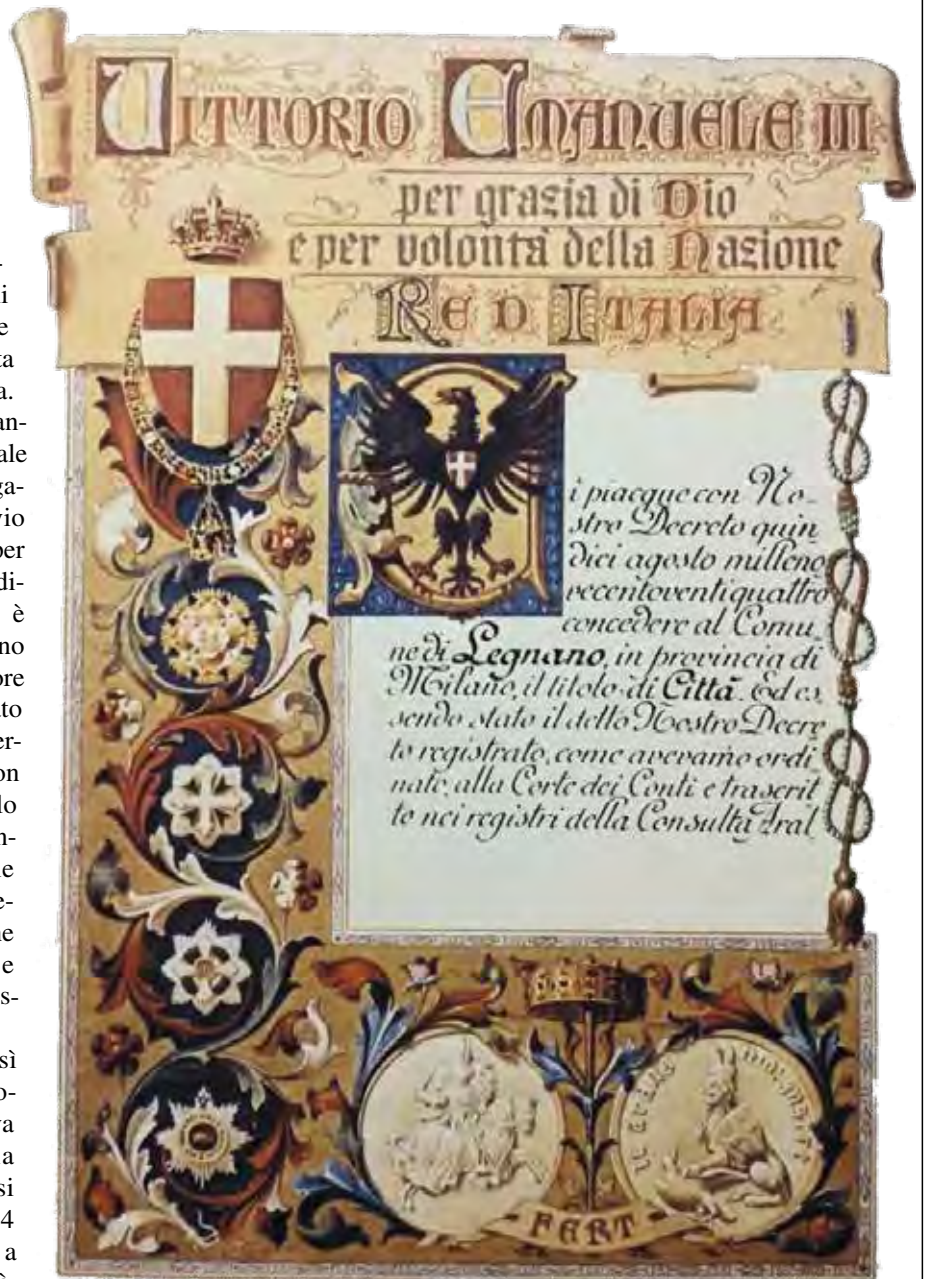 VITTORIO EMANUELE III
per grazia di Dio
e per volontà della Nazione
RE D'ITALIA
Ci piacque con No-
stro Decreto quin
dici agosto milleno
vecentoventiquattro
concedere al Comu
ne di Legnano, in provincia di
Milano, il titolo di Città. Ed es
sendo stato il detto Nostro Decre
to registrato, come avevamo ordi
nato, alla Corte dei Conti e trascrit
to nei registri della Consulta Aral
FERT
i
e
ta
a.
an-
ale
ga-
vio
per
di-
è
no
ore
to
er-
on
lo
n-
e-
ne
e
s-
sì
o-
va
a
si
4
a